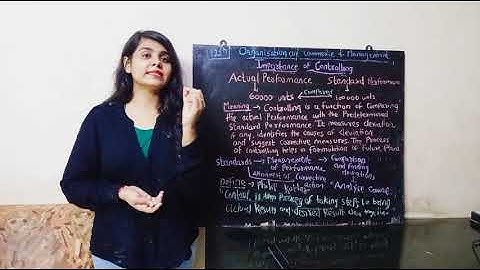 12th Organisation of Commerce & Management
Importance of Controlling
Actual Performance Standard Performance
60000 units Comparing 100000 units
Meaning → Controlling is a function of Comparing
the actual Performance with the Predetermined
Standard Performance. It measures deviation
if any, identifies the causes of deviation
and suggest Corrective measures. The Process
of controlling helps in formulation of future Plans
Standards → Measurable → Comparison
of Performance and finding
deviations
Corrective
action Analyse Cause
Define → Philip Kotler
"Control is the Process of taking steps to bring
actual Result and desired Result